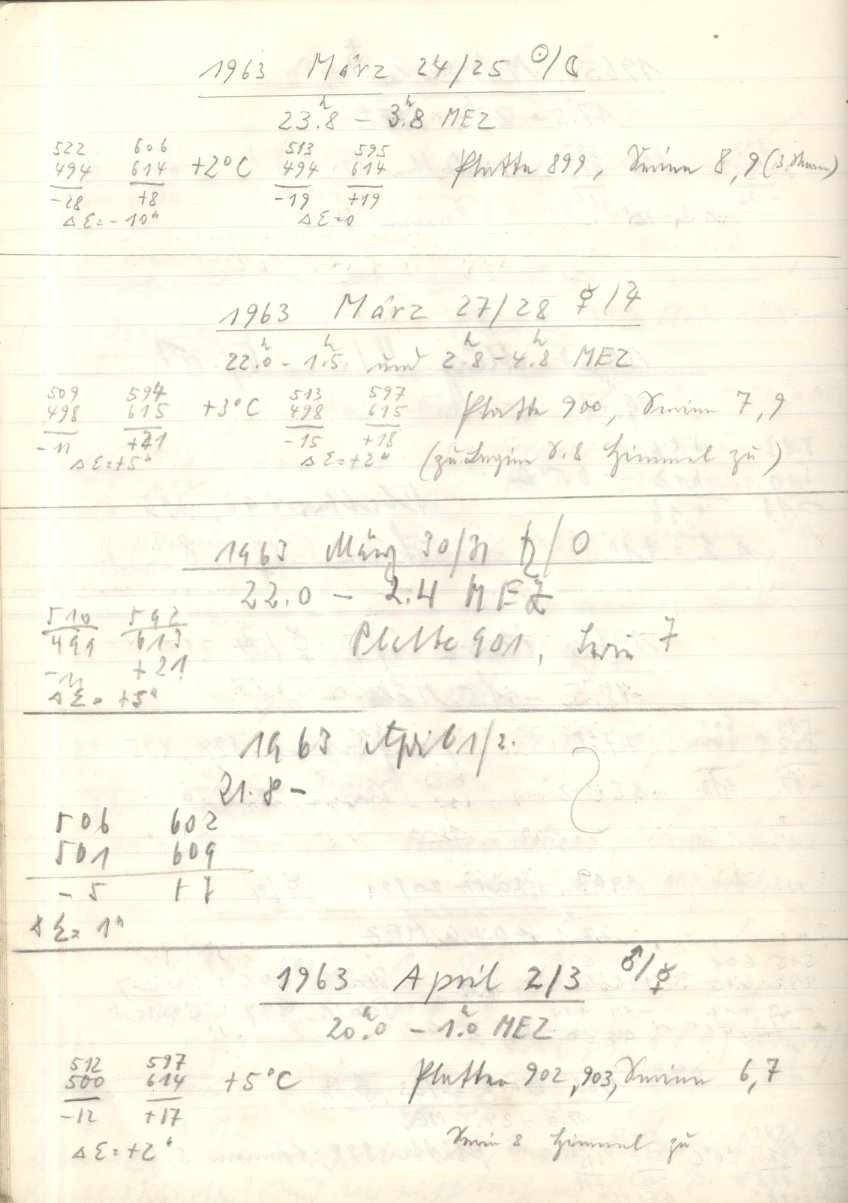 1963 März 24/25 ☉/☾
23.8ʰ – 3.8ʰ MEZ
522 606 513 595
494 614 +2°C 494 614 Platte 899, Serien 8, 9 (3.
-28 +8 -19 +19
Δε=-10" Δε=0
1963 März 27/28 ☿/♃
22.0 – 1.5ʰ und 2.8ʰ – 4.8ʰ MEZ
509 594 513 597
498 615 +3°C 498 615 Platte 900, Serien 7, 9
-11 +21 -15 +18
Δε=+5" Δε=+2" (zu Beginn S.8 Himmel zu)
1963 März 30/31 ♄/☉
22.0 – 2.4 MEZ
510 592
499 613 Platte 901, Serie 7
-11 +21
Δε= +5"
1963 April 1/2.
21.8 –
506 602
501 609
-5 +7
Δε= 1"
1963 April 2/3 ♂/☿
20.0ʰ – 1.0ʰ MEZ
512 597
500 614 +5°C Platten 902, 903, Serien 6, 7
-12 +17
Δε=+2" Serie 8 Himmel zu